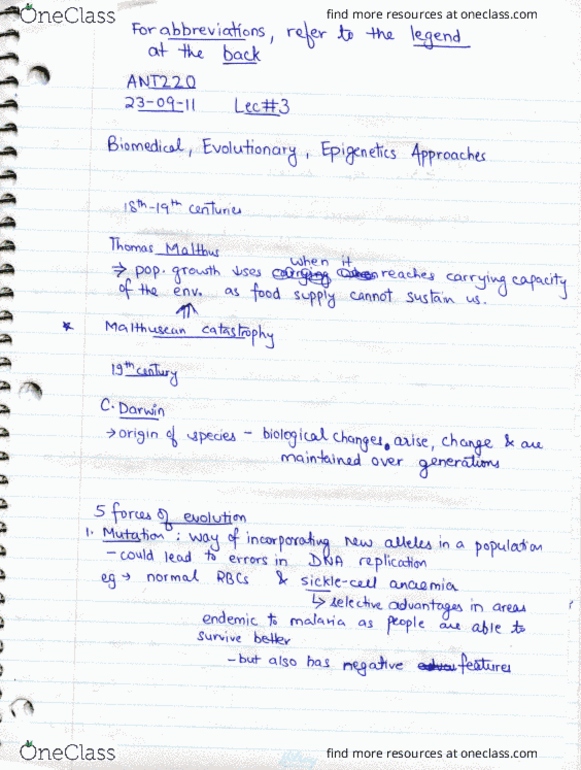 OneClass
find more resources at oneclass.com
For abbreviations, refer to the legend
at the back
ANT220
23-09-11 Lec#3
Biomedical, Evolutionary, Epigenetics Approaches
18th-19th centuries
Thomas Malthus
when it
⇒ pop. growth ↓ses reaches carrying capacity
of the env. as food supply cannot sustain us.
* Malthusean catastrophy
19th century
C. Darwin
→ origin of species - biological changes arise, change & are
maintained over generations
5 forces of evolution
1. Mutation : way of incorporating new alleles in a population
- could lead to errors in DNA replication
eg → normal RBCs & sickle-cell anaemia
↳ selective advantages in areas
endemic to malaria as people are able to
survive better
- but also has negative features
OneClass
find more resources at oneclass.com